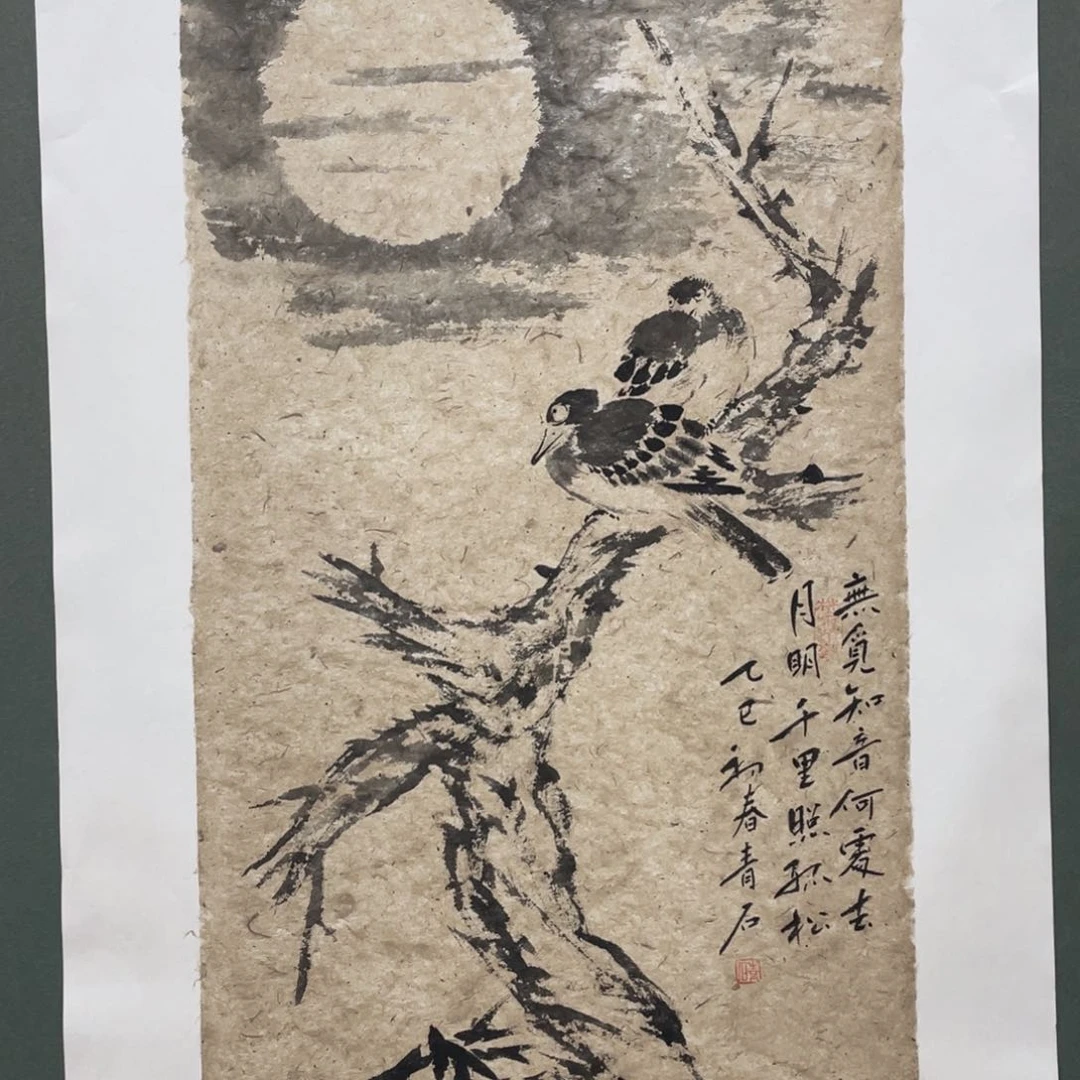 無覓知音何處去
月明千里照孤松
乙巳初春青石